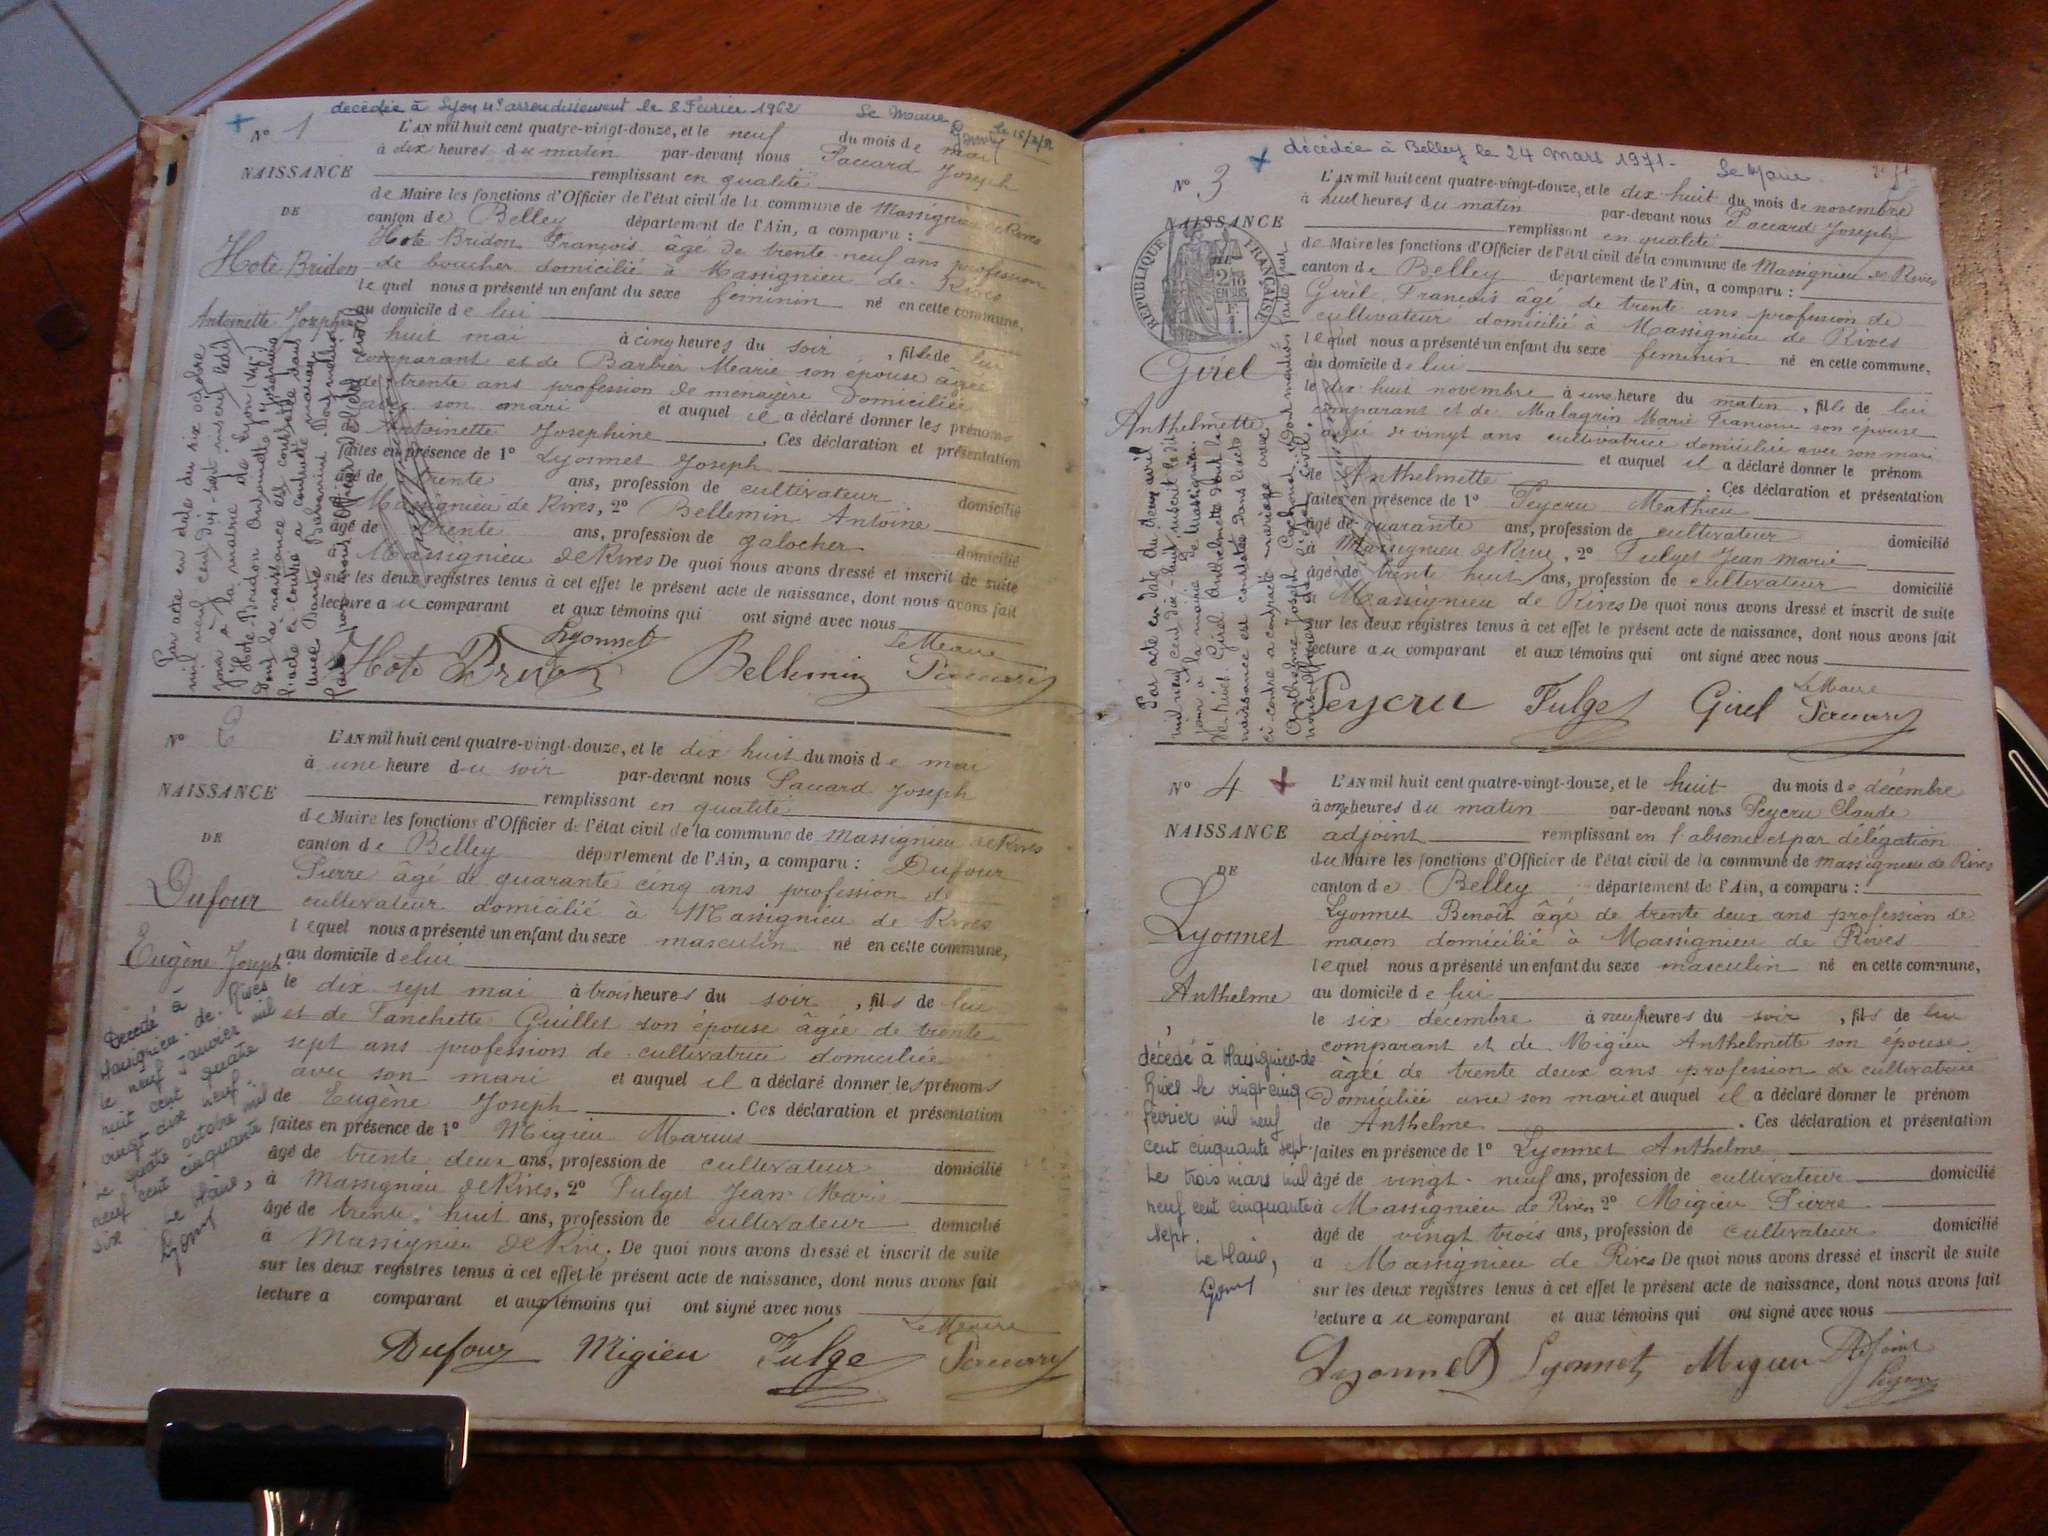 décédée à Lyon 4e arrondissement le 8 Février 1962 Le Maire
N° 1 L'AN mil huit cent quatre-vingt-douze, et le neuf du mois de mai
à dix heures du matin par-devant nous Paccard Joseph
NAISSANCE remplissant en qualité
de Maire les fonctions d'Officier de l'état civil de la commune de Massignieu de Rives
DE canton de Belley département de l'Ain, a comparu :
Hote Bridon François âgé de trente-neuf ans profession
Hote Bridon de boucher domicilié à Massignieu de Rives
lequel nous a présenté un enfant du sexe féminin né en cette commune,
Antoinette Joséphine au domicile de lui
huit mai à cinq heures du soir, fille de lui
comparant et de Barbier Marie son épouse âgée
de trente ans profession de ménagère domiciliée
avec son mari et auquel il a déclaré donner les prénoms
Antoinette Josephine . Ces déclaration et présentation
faites en présence de 1° Lyonnet Joseph
âgé de trente ans, profession de cultivateur domicilié
Massignieu de Rives, 2° Bellemin Antoine
âgé de trente ans, profession de galocher domicilié
Massignieu de Rives De quoi nous avons dressé et inscrit de suite
sur les deux registres tenus à cet effet le présent acte de naissance, dont nous avons fait
lecture au comparant et aux témoins qui ont signé avec nous
Par acte en date du six octobre
mil neuf cent dix-sept inscrit ledit
jour à la mairie de Lyon
Hote-Bridon Antoinette Joséphine
dont la naissance est constatée dans
l'acte ci-contre a contracté mariage
avec
Lyonnet Le Maire
Hote Bridon Bellemin Paccard
N° 2 L'AN mil huit cent quatre-vingt-douze, et le dix huit du mois de mai
à une heure du soir par-devant nous Paccard Joseph
NAISSANCE remplissant en qualité
de Maire les fonctions d'Officier de l'état civil de la commune de Massignieu de Rives
DE canton de Belley département de l'Ain, a comparu : Dufour
Pierre âgé de quarante cinq ans profession de
Dufour cultivateur domicilié à Massignieu de Rives
lequel nous a présenté un enfant du sexe masculin né en cette commune,
Eugène Joseph au domicile de lui
le dix sept mai à trois heures du soir, fils de lui
et de Fanchette Guillet son épouse âgée de trente
sept ans profession de cultivatrice domiciliée
avec son mari et auquel il a déclaré donner les prénoms
de Eugène Joseph . Ces déclaration et présentation
faites en présence de 1° Migieu Marius
âgé de trente deux ans, profession de cultivateur domicilié
à Massignieu de Rives, 2° Fulget Jean Marie
âgé de trente huit ans, profession de cultivateur domicilié
à Massignieu de Rives. De quoi nous avons dressé et inscrit de suite
sur les deux registres tenus à cet effet le présent acte de naissance, dont nous avons fait
lecture a comparant et aux témoins qui ont signé avec nous
Décédé à
Massignieu de Rives
le neuf janvier mil
Le quatre octobre mil
neuf cent cinquante
six
Le Maire,
Le Maire
Dufour Migieu Fulget Paccard
décédée à Belley le 24 mars 1971. Le Maire
N° 3 L'AN mil huit cent quatre-vingt-douze, et le dix huit du mois de novembre
à huit heures du matin par-devant nous Paccard Joseph
NAISSANCE remplissant en qualité
REPUBLIQUE FRANÇAISE
de Maire les fonctions d'Officier de l'état civil de la commune de Massignieu de Rives
DE canton de Belley département de l'Ain, a comparu :
Girel François âgé de trente ans profession de
cultivateur domicilié à Massignieu de Rives
lequel nous a présenté un enfant du sexe féminin né en cette commune,
Girel au domicile de lui
le dix huit novembre à une heure du matin, fille de lui
Anthelmette comparant et de Malagrin Marie Françoise son épouse
âgée de vingt ans cultivatrice domiciliée avec son mari
et auquel il a déclaré donner le prénom
de Anthelmette . Ces déclaration et présentation
faites en présence de 1° Peycru Mathieu
âgé de quarante ans, profession de cultivateur domicilié
à Massignieu de Rives, 2° Fulget Jean Marie
âgé de trente huit ans, profession de cultivateur domicilié
à Massignieu de Rives De quoi nous avons dressé et inscrit de suite
sur les deux registres tenus à cet effet le présent acte de naissance, dont nous avons fait
lecture au comparant et aux témoins qui ont signé avec nous
Par acte en date du deux avril
mil neuf cent dix-huit inscrit le dit
jour à la mairie de Massignieu
de Rives Girel Anthelmette dont la
naissance est constatée dans l'acte
ci-contre a contracté mariage avec
Anthelme Joseph
Le Maire
Peycru Fulget Girel Paccard
N° 4 L'AN mil huit cent quatre-vingt-douze, et le huit du mois de décembre
à onze heures du matin par-devant nous Peycru Claude
NAISSANCE adjoint remplissant en l'absence et par délégation
du Maire les fonctions d'Officier de l'état civil de la commune de Massignieu de Rives
DE canton de Belley département de l'Ain, a comparu :
Lyonnet Benoît âgé de trente deux ans profession de
Lyonnet maçon domicilié à Massignieu de Rives
lequel nous a présenté un enfant du sexe masculin né en cette commune,
Anthelme au domicile de lui
le six décembre à neuf heures du soir, fils de lui
comparant et de Migieu Anthelmette son épouse
âgée de trente deux ans profession de cultivatrice
Domiciliée avec son mari et auquel il a déclaré donner le prénom
de Anthelme . Ces déclaration et présentation
faites en présence de 1° Lyonnet Anthelme
âgé de vingt-neuf ans, profession de cultivateur domicilié
à Massignieu de Rives 2° Migieu Pierre
âgé de vingt trois ans, profession de cultivateur domicilié
a Massignieu de Rives De quoi nous avons dressé et inscrit de suite
sur les deux registres tenus à cet effet le présent acte de naissance, dont nous avons fait
lecture au comparant et aux témoins qui ont signé avec nous
décédé à Massignieu-de
Rives le vingt-cinq
février mil neuf
cent cinquante sept
Le trois mars mil
neuf cent cinquante
sept
Le Maire,
Lyonnet Lyonnet Migieu